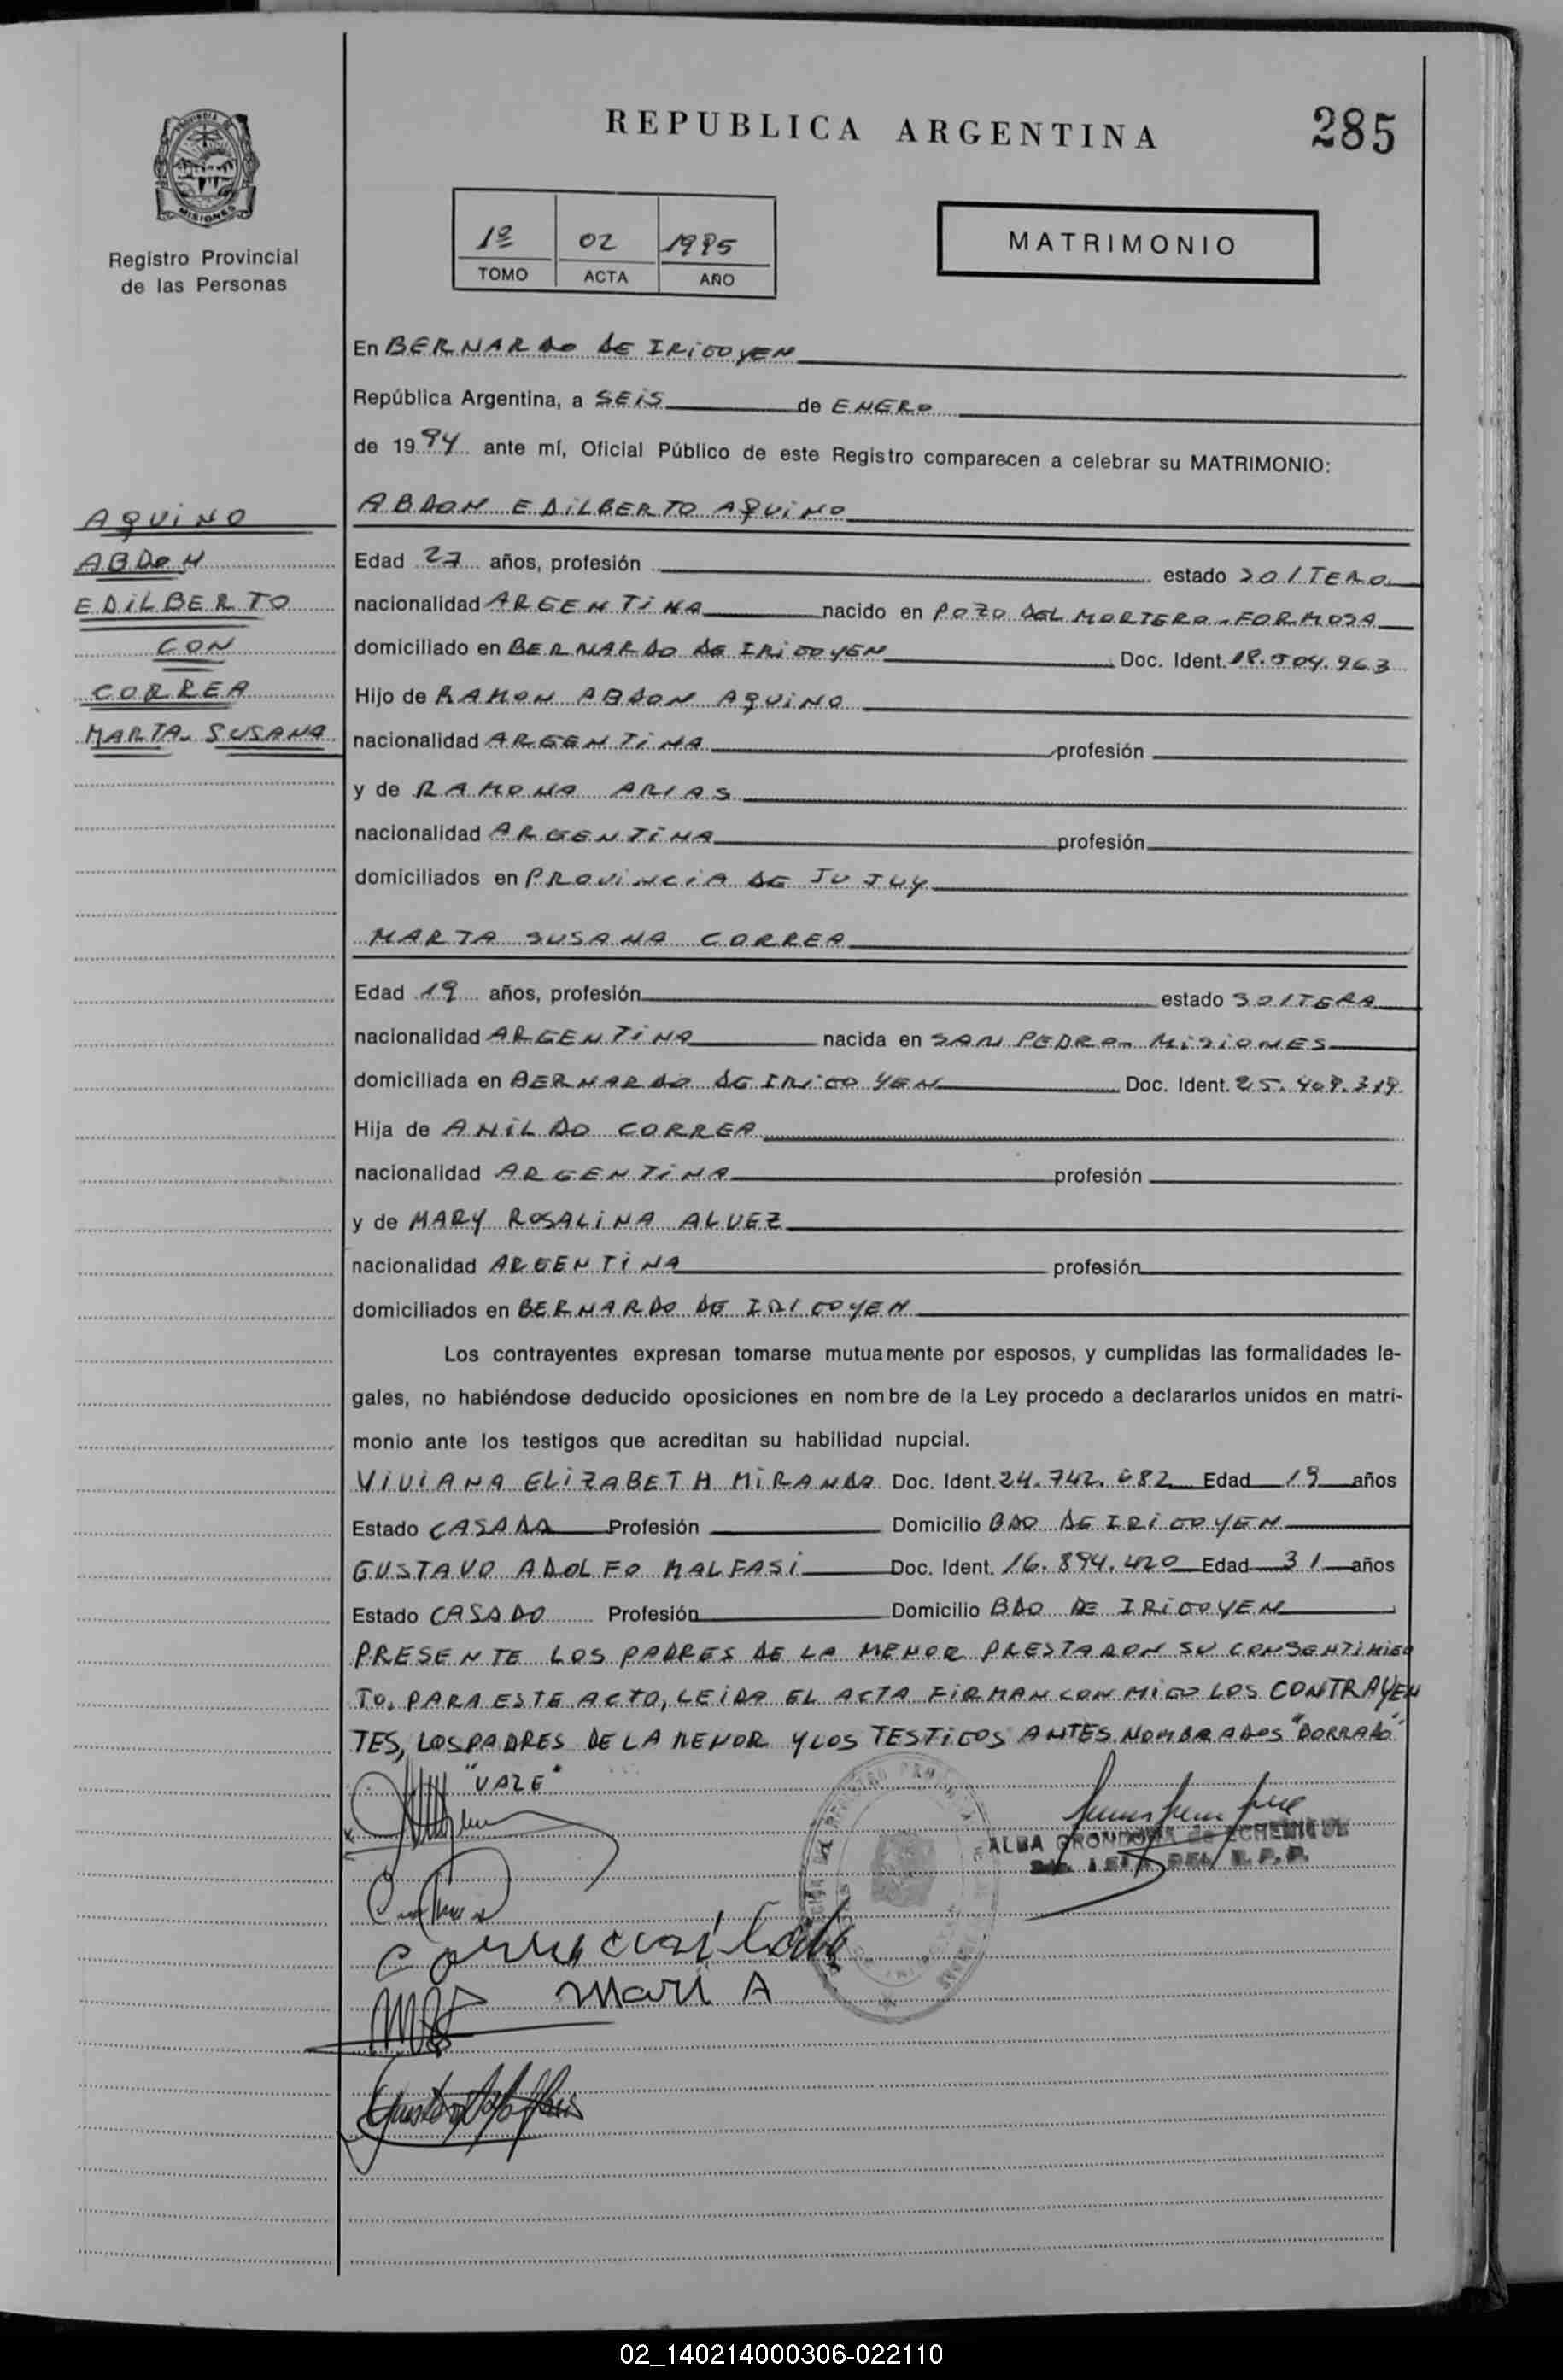 REPUBLICA ARGENTINA
285
PROVINCIA DE
MISIONES
Registro Provincial
de las Personas
1º 02 1995
TOMO ACTA AÑO
MATRIMONIO
En BERNARDO DE IRIGOYEN
República Argentina, a SEIS de ENERO
de 1994 ante mí, Oficial Público de este Registro comparecen a celebrar su MATRIMONIO:
AQUINO
ABDON
EDILBERTO
CON
CORREA
MARTA SUSANA
ABDON EDILBERTO AQUINO
Edad 27 años, profesión estado SOLTERO
nacionalidad ARGENTINA nacido en POZO DEL MORTERO - FORMOSA
domiciliado en BERNARDO DE IRIGOYEN Doc. Ident. 18.504.963
Hijo de RAMON ABDON AQUINO
nacionalidad ARGENTINA profesión
y de RAMONA ARIAS
nacionalidad ARGENTINA profesión
domiciliados en PROVINCIA DE JUJUY
MARTA SUSANA CORREA
Edad 19 años, profesión estado SOLTERA
nacionalidad ARGENTINA nacida en SAN PEDRO - MISIONES
domiciliada en BERNARDO DE IRIGOYEN Doc. Ident.
Hija de ANILDO CORREA
nacionalidad ARGENTINA profesión
y de MARY ROSALINA ALVEZ
nacionalidad ARGENTINA profesión
domiciliados en BERNARDO DE IRIGOYEN
Los contrayentes expresan tomarse mutuamente por esposos, y cumplidas las formalidades le-
gales, no habiéndose deducido oposiciones en nombre de la Ley procedo a declararlos unidos en matri-
monio ante los testigos que acreditan su habilidad nupcial.
VIVIANA ELIZABETH MIRANDA Doc. Ident. 24.742.682 Edad 19 años
Estado CASADA Profesión Domicilio BDO DE IRIGOYEN
GUSTAVO ADOLFO MALFASI Doc. Ident. 16.894.420 Edad 31 años
Estado CASADO Profesión Domicilio BDO DE IRIGOYEN
PRESENTE LOS PADRES DE LA MENOR PRESTARON SU CONSENTIMIEN
TO, PARA ESTE ACTO, LEIDA EL ACTA FIRMAN CON MIGO LOS CONTRAYEN
TES, LOS PADRES DE LA MENOR Y LOS TESTIGOS ANTES NOMBRADOS "BORRADO"
"VALE"
ALBA GRONDONA de ECHENIQUE
DEL R.P.P.
Mari A
02_140214000306-022110